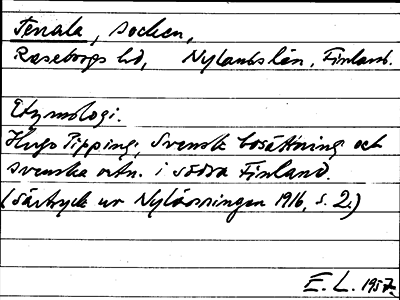 Tenala, socken,
Raseborgs hd, Nylands län, Finland.
Etymologi.
Hugo Pipping, Svensk bosättning och
svenska ortn. i södra Finland.
(Särtryck ur Nylänningen 1916, s. 2.)
E. L. 1957.